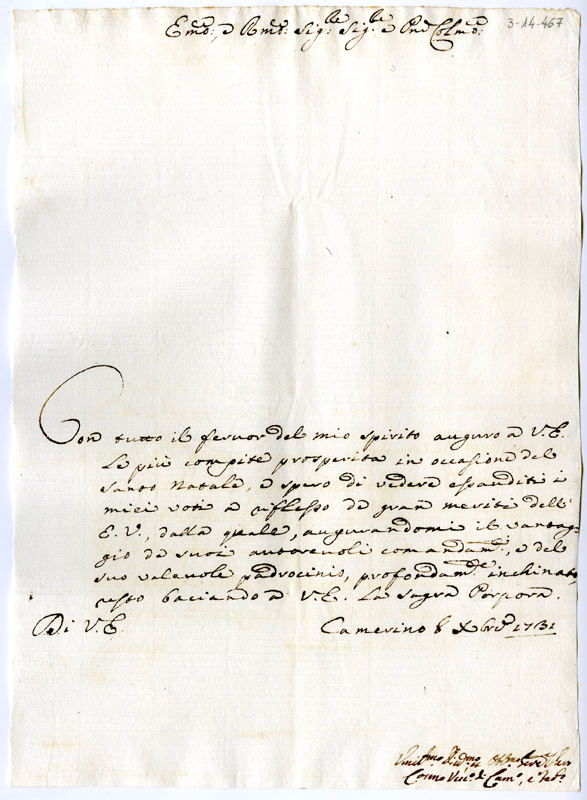 3-14-467
Em̃o: e Rm̃o: Sig:re Sig:re e Pñe Colm̃o:
Con tutto il feruor del mio spirito auguro a V.E.
le più compite prosperità in occasione del
Santo Natale, e spero di vedere essauditi i
miei voti a riflesso de gran meriti dell'
E.V., dalla quale, augurandomi il vantag-
gio de suoi autoreuoli comandam:ti, e del
suo valeuole padrocinio, profondam:te inchinato
resto baciando a V.E. la Sagra Porpora.
Di V.E. Camerino 8 Xbre 1731
Cosmo Vesc:o di Cam:o, e